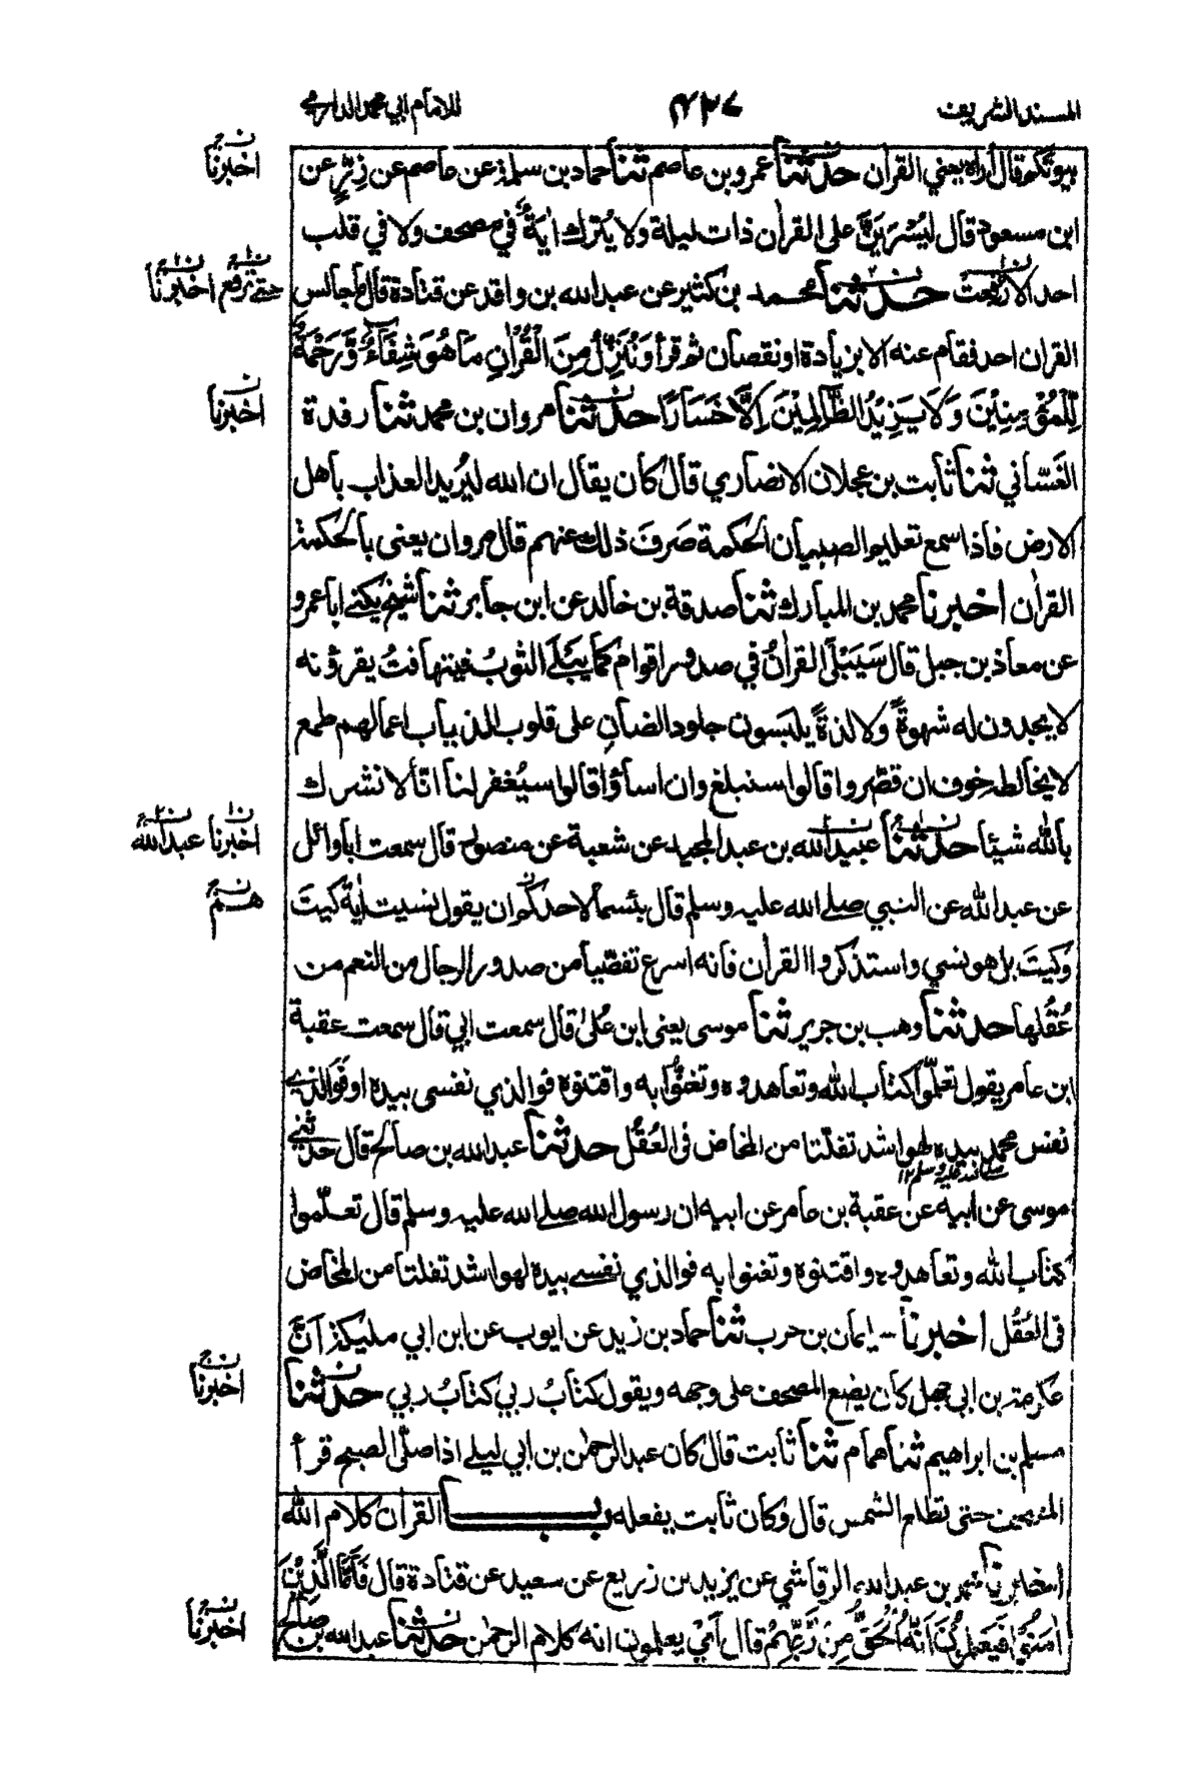 المسند الشريف ٤٢٧ للامام ابي محمد الدارمي
بيوتكم قال أراه يعني القرآن حدثنا عمرو بن عاصم ثنا حماد بن سلمة عن عاصم عن زِرٍّ عن
اخبرنا
ابن مسعود قال لَيُسْرَيَنَّ على القرآن ذات ليلة ولا يُترك آيةٌ في مصحف ولا في قلب
احد الا رفعت حدثنا محمد بن كثير عن عبد الله بن واقد عن قتادة قال ما جالس
حتى ترفع اخبرنا
القران احد فقام عنه الا بزيادة او نقصان ثم قرأ وَنُنَزِّلُ مِنَ الْقُرْاٰنِ مَا هُوَ شِفَآءٌ وَّرَحْمَةٌ
لِّلْمُؤْمِنِيْنَ وَلَا يَزِيْدُ الظَّالِمِيْنَ اِلَّا خَسَارًا حدثنا مروان بن محمد ثنا رفدة
اخبرنا
الغَسّاني ثنا ثابت بن عجلان الانصاري قال كان يقال ان الله ليُريد العذاب باهل
الارض فاذا سمع تعليم الصبيان الحكمة صَرَفَ ذلك عنهم قال مروان يعنى بالحكمة
القرآن اخبرنا محمد بن المبارك ثنا صدقة بن خالد عن ابن جابر ثنا شيخ يكنى ابا عمرو
عن معاذ بن جبل قال سَيَبْلَى القرآنُ في صدور اقوام كما يَبْلَى الثوبُ فيتهافتُ يقرؤنه
لا يجدون له شهوةً ولا لذةً يلبَسون جلود الضان على قلوب الذياب اعمالهم طمع
لا يخالطه خوف ان قصّروا قالوا سنبلغ وان اساؤا قالوا سيُغفر لنا انّا لا نشرك
بالله شيئا حدثنا عبيد الله بن عبد المجيد عن شعبة عن منصور قال سمعت ابا وائل
اخبرنا عبد الله
عن عبد الله عن النبي صلى الله عليه وسلم قال بئسما لاحدكم ان يقول نسيت آية كيتَ
وكيتَ بل هو نسي واستذكروا القرآن فانه اسرع تفصّيا من صدور الرجال من النعم من
عُقُلها حدثنا وهب بن جرير ثنا موسى يعنى ابن عُلىّ قال سمعت ابي قال سمعت عقبة
ابن عامر يقول تعلّموا كتاب الله وتعاهدوه وتغنّوا به واقتنوه فوالذي نفسى بيده او فوالذى
نفس محمد بيده لهو اشد تفلّتا من المخاض فى العُقُل حدثنا عبد الله بن صالح قال حدثنى
صلى الله عليه وسلم ١٢
موسى عن ابيه عن عقبة بن عامر عن ابيه ان رسول الله صلى الله عليه وسلم قال تعلّموا
كتاب الله وتعاهدوه واقتنوه وتغنوا به فوالذي نفسى بيده لهو اشد تفلتا من المخاض
فى العُقُل اخبرنا بن حرب ثنا حماد بن زيد عن ايوب عن ابن ابي مليكة انّ
عكرمة بن ابي جهل كان يضع المصحف على وجهه ويقول كتابُ ربي كتابُ ربي حدثنا
اخبرنا
مسلم بن ابراهيم ثنا همام ثنا ثابت قال كان عبد الرحمن بن ابي ليلى اذا صلّى الصبح قرأ
المصحف حتى تطلع الشمس قال وكان ثابت يفعله باب القرآن كلام الله
اخبرنا محمد بن عبد الله الرقاشي عن يزيد بن زريع عن سعيد عن قتادة قال فَاَمَّا الَّذِيْنَ
اٰمَنُوْا فَيَعْلَمُوْنَ اَنَّهُ الْحَقُّ مِنْ رَّبِّهِمْ قال اَيْ يعلمون انه كلام الرحمن حدثنا عبد الله بن صالح
اخبرنا